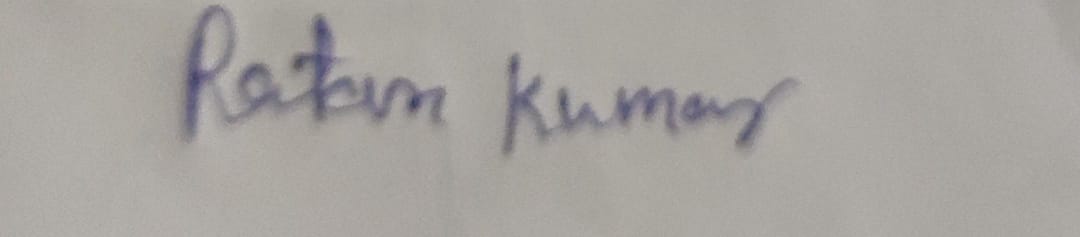 Ratan Kumar